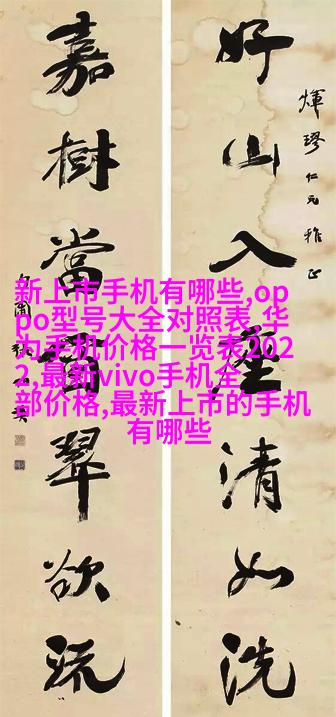 煇璆仁兄雅正
好山入座清如洗
嘉樹當翠欲流
新上市手机有哪些,op
po型号大全对照表,华
为手机价格一览表202
2,最新vivo手机全
部价格,最新上市的手机
有哪些